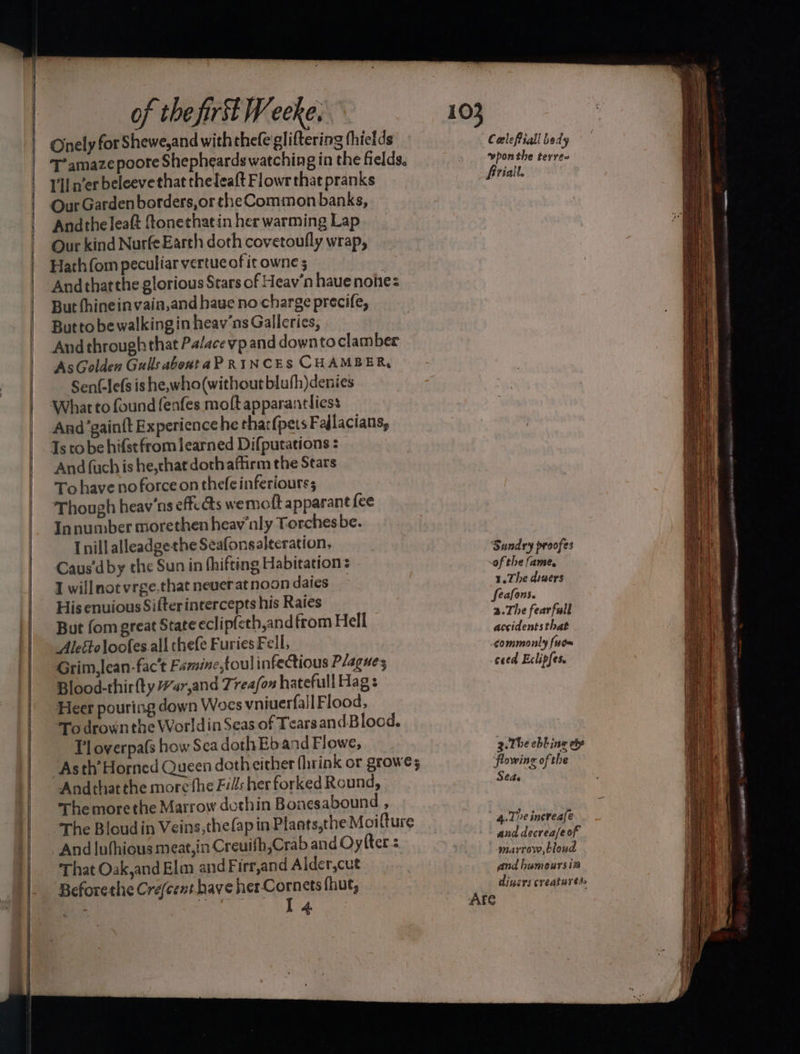 of the firſt Weeke.
103
Onely for Shewe, and with theſe gliſtering ſhields
T'amaze poore Shepheards watching in the fields.
I'll n'er beleeve that the leaſt Flowr that pranks
Our Garden borders, or the Common banks,
And the leaſt ſtone that in her warming Lap
Our kind Nurſe Earth doth covetouſly wrap,
Hath ſom peculiar vertue of it owne;
And that the glorious Stars of Heav'n haue none:
But ſhine in vain, and haue no charge preciſe,
But to be walking in heav'ns Galleries,
And through that Palace vp and down to clamber
As Golden Gulls about a PRINCES CHAMBER.
Senſ-leſs is he, who (without bluſh) denies
What to ſound ſenſes moſt apparant lies:
And 'gainſt Experience he that ſpets Fallacians,
Is to be hiſst from learned Diſputations:
And ſuch is he, that doth affirm the Stars
To have no force on theſe inferiours;
Though heav'ns effects we moſt apparant ſee
In number more then heav'nly Torches be.
I nill alleadge the Seaſons alteration,
Caus'd by the Sun in ſhifting Habitation:
I will not vrge, that neuer at noon daies
His enuious Siſter intercepts his Raies
But ſom great State eclipſeth, and from Hell
Alecto looſes all theſe Furies Fell,
Grim, lean-fac't Famine, foul infectious Plague,
Blood-thirſty War, and Treaſon hatefull Hag:
Heer pouring down Woes vniuerſall Flood,
To drown the World in Seas of Tears and Blood.
I'l overpaſs how Sea doth Eb and Flowe,
As th' Horned Queen doth either ſhrink or growe;
And that the more ſhe Fills her forked Round,
The more the Marrow doth in Bones abound,
The Bloud in Veins, the ſap in Plants, the Moiſture
And luſhious meat, in Creuiſh, Crab and Oyſter:
That Oak, and Elm and Firr, and Alder, cut
Before the Creſcent have her Cornets ſhut,
I 4
Are
Cœleſtiall body
vpon the terre-
ſtriall.
Sundry proofes
of the ſame.
1. The diuers
ſeaſons.
2. The fearfull
accidents that
commonly ſuc-
ceed Eclipſes.
3. The ebbing &
flowing of the
Sea.
4. The increaſe
and decreaſe of
marrow, bloud
and humours in
diuers creatures.